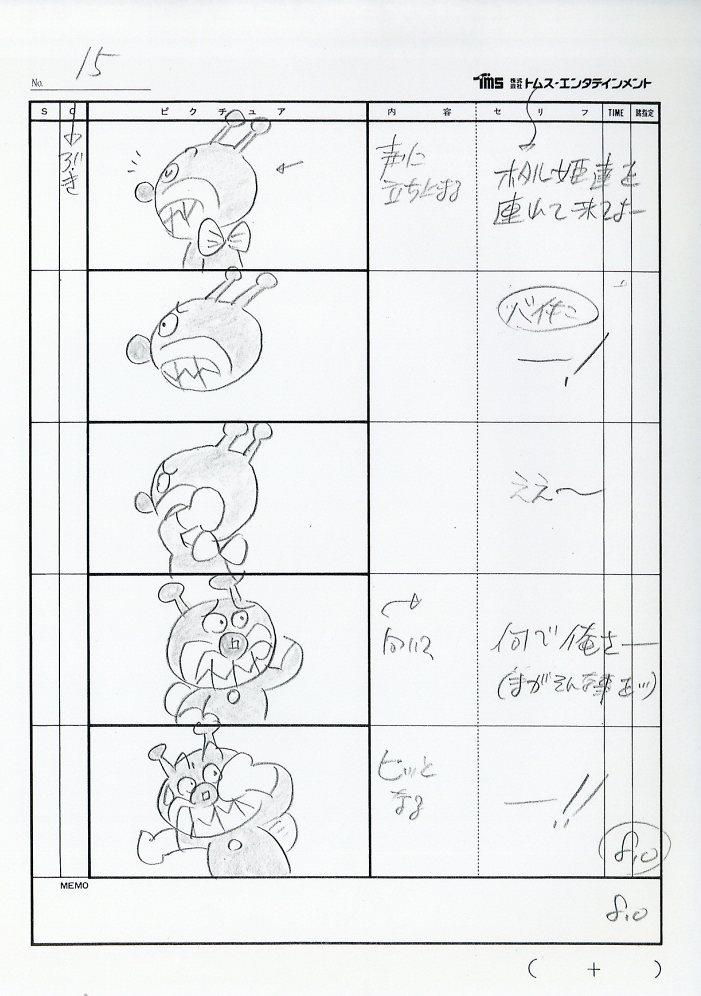 No. 15
TMS 株式会社 トムス・エンタテインメント
S C ピクチュア 内容 セリフ TIME 諸指定
つづき
声に
立ち止まる
ホタル姫達を
連れて来てよー
バイキン
ー!
ええ〜
何で俺さー
(まがそんな事を…)
ビッと
なる
ー!!
8.0
MEMO
8.0
( + )